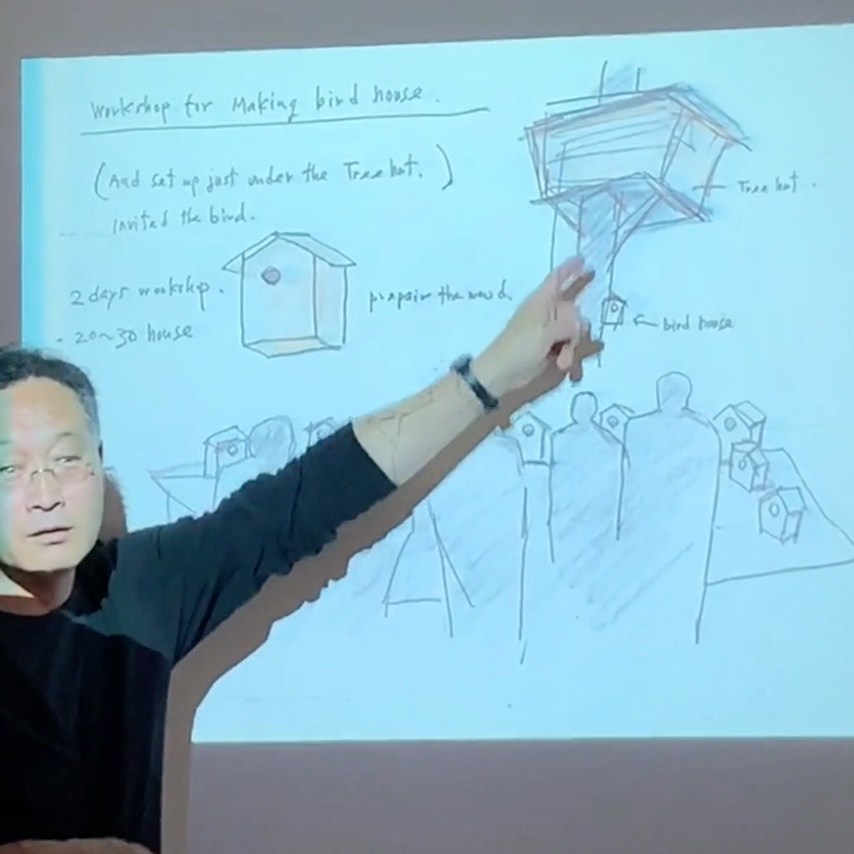 Workshop for Making bird house.
(And set up just under the Tree hut.)
invited the bird.
Tree hut.
2 days workshop.
prepair the wood.
- 20~30 house
bird house